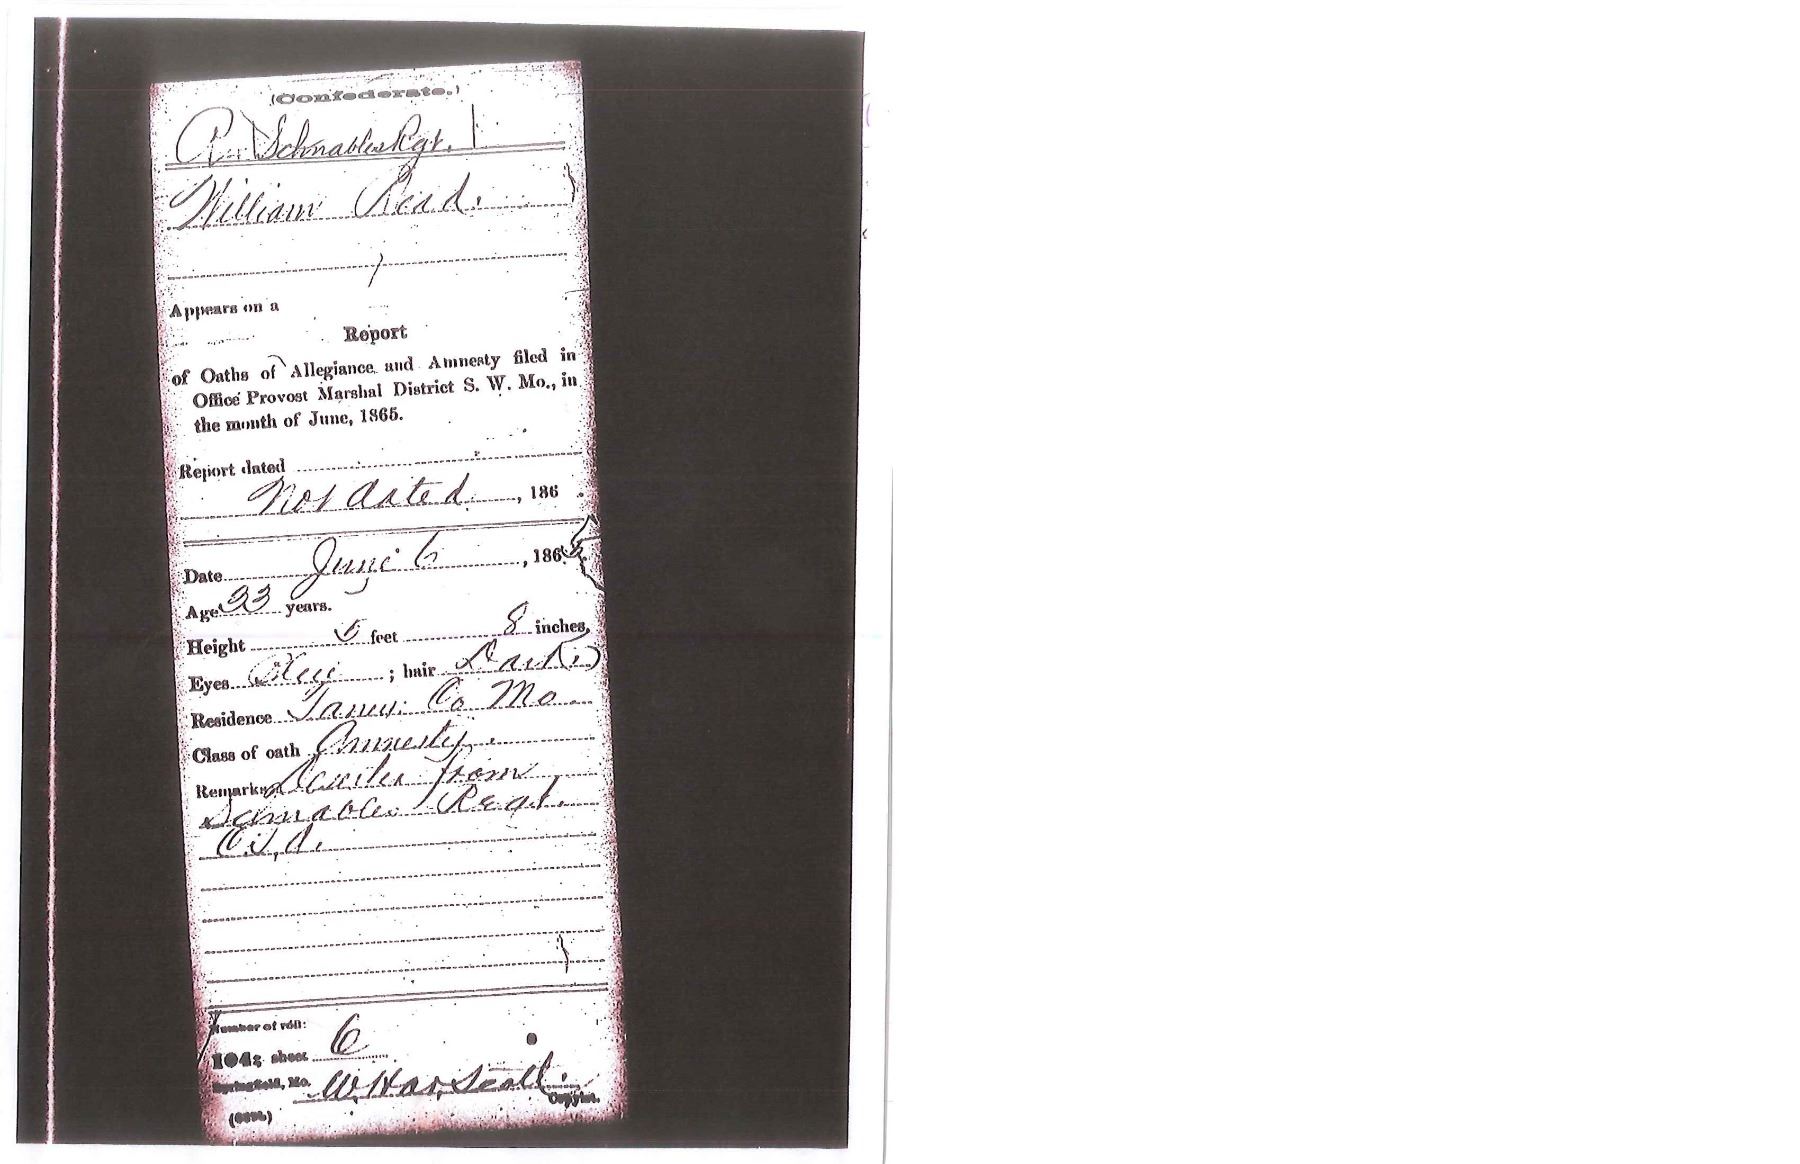 (Confederate.)
R. | Schnables Rgt. |
William Read.
Appears on a
Report
of Oaths of Allegiance and Amnesty filed in
Office Provost Marshal District S. W. Mo., in
the month of June, 1865.
Report dated
Not dated, 186 .
Date June 6, 1865.
Age 33 years.
Height 5 feet 8 inches,
Eyes Blue ; hair Dark
Residence Taney Co Mo
Class of oath Amnesty.
Remarks from
Schnables Regt.
C.S.A.
Number of roll:
104; sheet 6
Springfield, Mo. W. H.
Copyist.